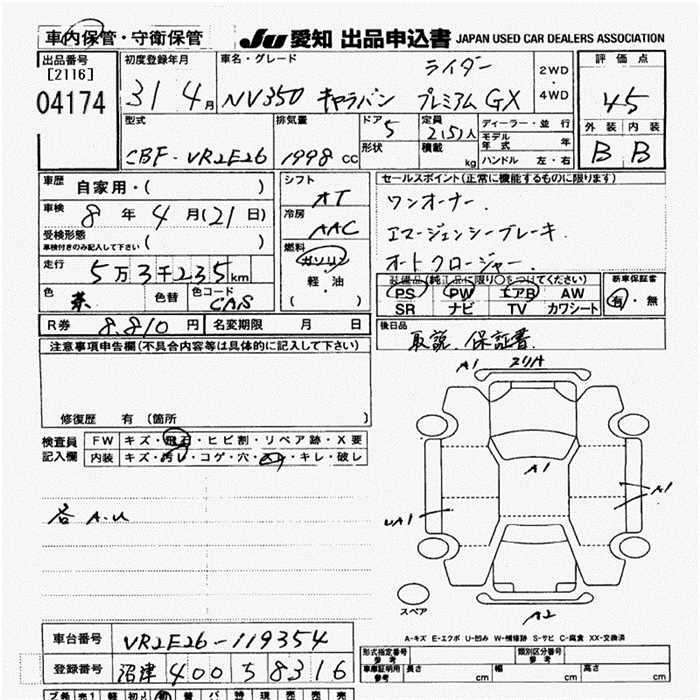 車内保管・守衛保管
JU 愛知 出品申込書 JAPAN USED CAR DEALERS ASSOCIATION
出品番号
[2116]
04174
初度登録年月
31 4月
車名・グレード
ライダー
NV350 キャラバン プレミアムGX
2WD
・
4WD
評価点
45
外装 内装
B B
型式
CBF-VR2E26
排気量
1998 CC
ドア 5
形状
定員 2(5)人
積載 kg
ディーラー・並行
モデル年式 年
ハンドル 左・右
車歴
自家用・( )
車検
8年4月(21日)
受検形態
車検付きのみ記入して下さい ( )
走行
5万3千235km
色 茶 色替 色コード CAS
シフト
AT
冷房
AAC
燃料
ガソリン
軽油
( ・ )
セールスポイント(正常に機能するものに限ります)
ワンオーナー.
エマージェンシーブレーキ.
オートクロージャー.
装備品(純正品に限り○をつけてください)
PS PW エアB AW
SR ナビ TV カワシート
新車保証書
有・無
R券 8.810円 名変期限 月 日
後日品
取説. 保証書.
注意事項申告欄(不具合内容等は具体的に記入して下さい)
修復歴 有 (箇所 )
検査員
記入欄
FW キズ・飛石・ヒビ割・リペア跡・X要
内装 キズ・汚レ・コゲ・穴・ ・キレ・破レ
各 A.U
A1
A1
A1
UA1
スペア
A2
A-キズ E-エクボ U-凹み W-補修跡 S-サビ C-腐食 XX-交換済
車台番号 VR2E26-119354
登録番号 沼津 400 5 8316
形式指定番号
参考
類別区分番号
参考
車庫証明用
参考
長さ cm 幅 cm 高さ cm